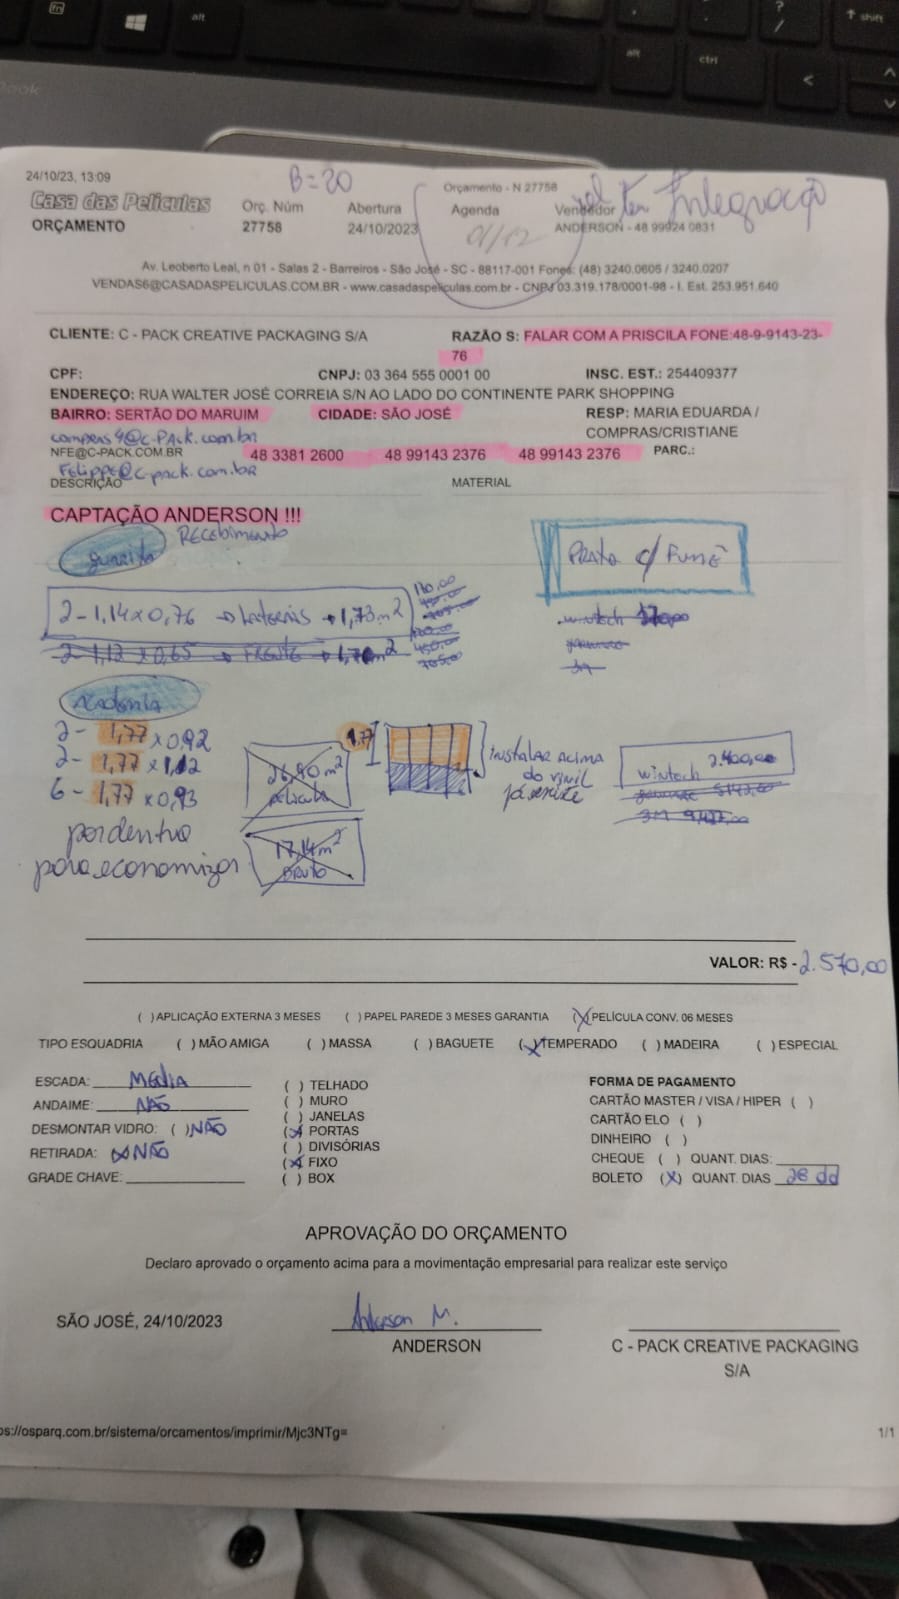 fn
alt
alt
ctrl
?
/
shift
<
24/10/23, 13:09
B=20
Orçamento - N 27758
Casa das Películas
Orç. Núm
Abertura
Agenda
Vendedor
tem Integração
ORÇAMENTO
27758
24/10/2023
01/12
ANDERSON - 48 99924 0831
Av. Leoberto Leal, n 01 - Salas 2 - Barreiros - São José - SC - 88117-001 Fones: (48) 3240.0605 / 3240.0207
VENDAS6@CASADASPELICULAS.COM.BR - www.casadaspeliculas.com.br - CNPJ 03.319.178/0001-98 - I. Est. 253.951.640
CLIENTE: C - PACK CREATIVE PACKAGING S/A
RAZÃO S: FALAR COM A PRISCILA FONE:48-9-9143-23-
76
CPF:
CNPJ: 03 364 555 0001 00
INSC. EST.: 254409377
ENDEREÇO: RUA WALTER JOSÉ CORREIA S/N AO LADO DO CONTINENTE PARK SHOPPING
BAIRRO: SERTÃO DO MARUIM
CIDADE: SÃO JOSÉ
RESP: MARIA EDUARDA /
COMPRAS/CRISTIANE
compras4@c-Pack.com.br
NFE@C-PACK.COM.BR
48 3381 2600
48 99143 2376
48 99143 2376
PARC.:
Felippe@c-pack.com.br
DESCRIÇÃO
MATERIAL
CAPTAÇÃO ANDERSON !!!
Recebimento
guarita
Prata c/ Fumê
2 - 1,14 x 0,76 → Laterais → 1,73m²
170,00
2 - 1,12 x 0,65 → FRENTE →
wintech 170,00
450,00
705,00
Academia
2 - 1,77 x 0,92
2 - 1,77 x 1,12
6 - 1,77 x 0,93
26,90 m²
película
17,14m²
bruto
1,77
instalar acima
do vinil
já existe
wintech 2.400,00
3M
por dentro
para economizar
VALOR: R$ - 2.570,00
( ) APLICAÇÃO EXTERNA 3 MESES ( ) PAPEL PAREDE 3 MESES GARANTIA (X) PELÍCULA CONV. 06 MESES
TIPO ESQUADRIA ( ) MÃO AMIGA ( ) MASSA ( ) BAGUETE (X) TEMPERADO ( ) MADEIRA ( ) ESPECIAL
ESCADA: MEDIA
ANDAIME: NÃO
DESMONTAR VIDRO: ( ) NÃO
RETIRADA: (X) NÃO
GRADE CHAVE:
( ) TELHADO
( ) MURO
( ) JANELAS
(X) PORTAS
( ) DIVISÓRIAS
(X) FIXO
( ) BOX
FORMA DE PAGAMENTO
CARTÃO MASTER / VISA / HIPER ( )
CARTÃO ELO ( )
DINHEIRO ( )
CHEQUE ( ) QUANT. DIAS:
BOLETO (X) QUANT. DIAS 28 dd
APROVAÇÃO DO ORÇAMENTO
Declaro aprovado o orçamento acima para a movimentação empresarial para realizar este serviço
SÃO JOSÉ, 24/10/2023
Anderson M.
ANDERSON
C - PACK CREATIVE PACKAGING
S/A
ps://osparq.com.br/sistema/orcamentos/imprimir/Mjc3NTg=
1/1